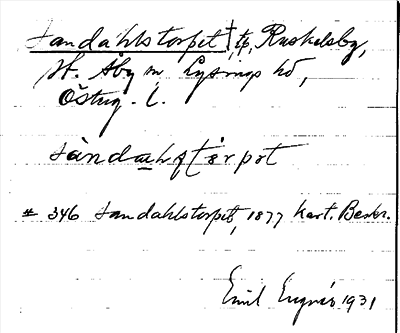 Sandåhlstorpet †, tp, Ruskelsby,
St. Åby sn Lysings hd,
Östug. L.
sàndahstårpət
# 346 Sandahlstorpet, 1877 kart. Beskr.
Emil 1931